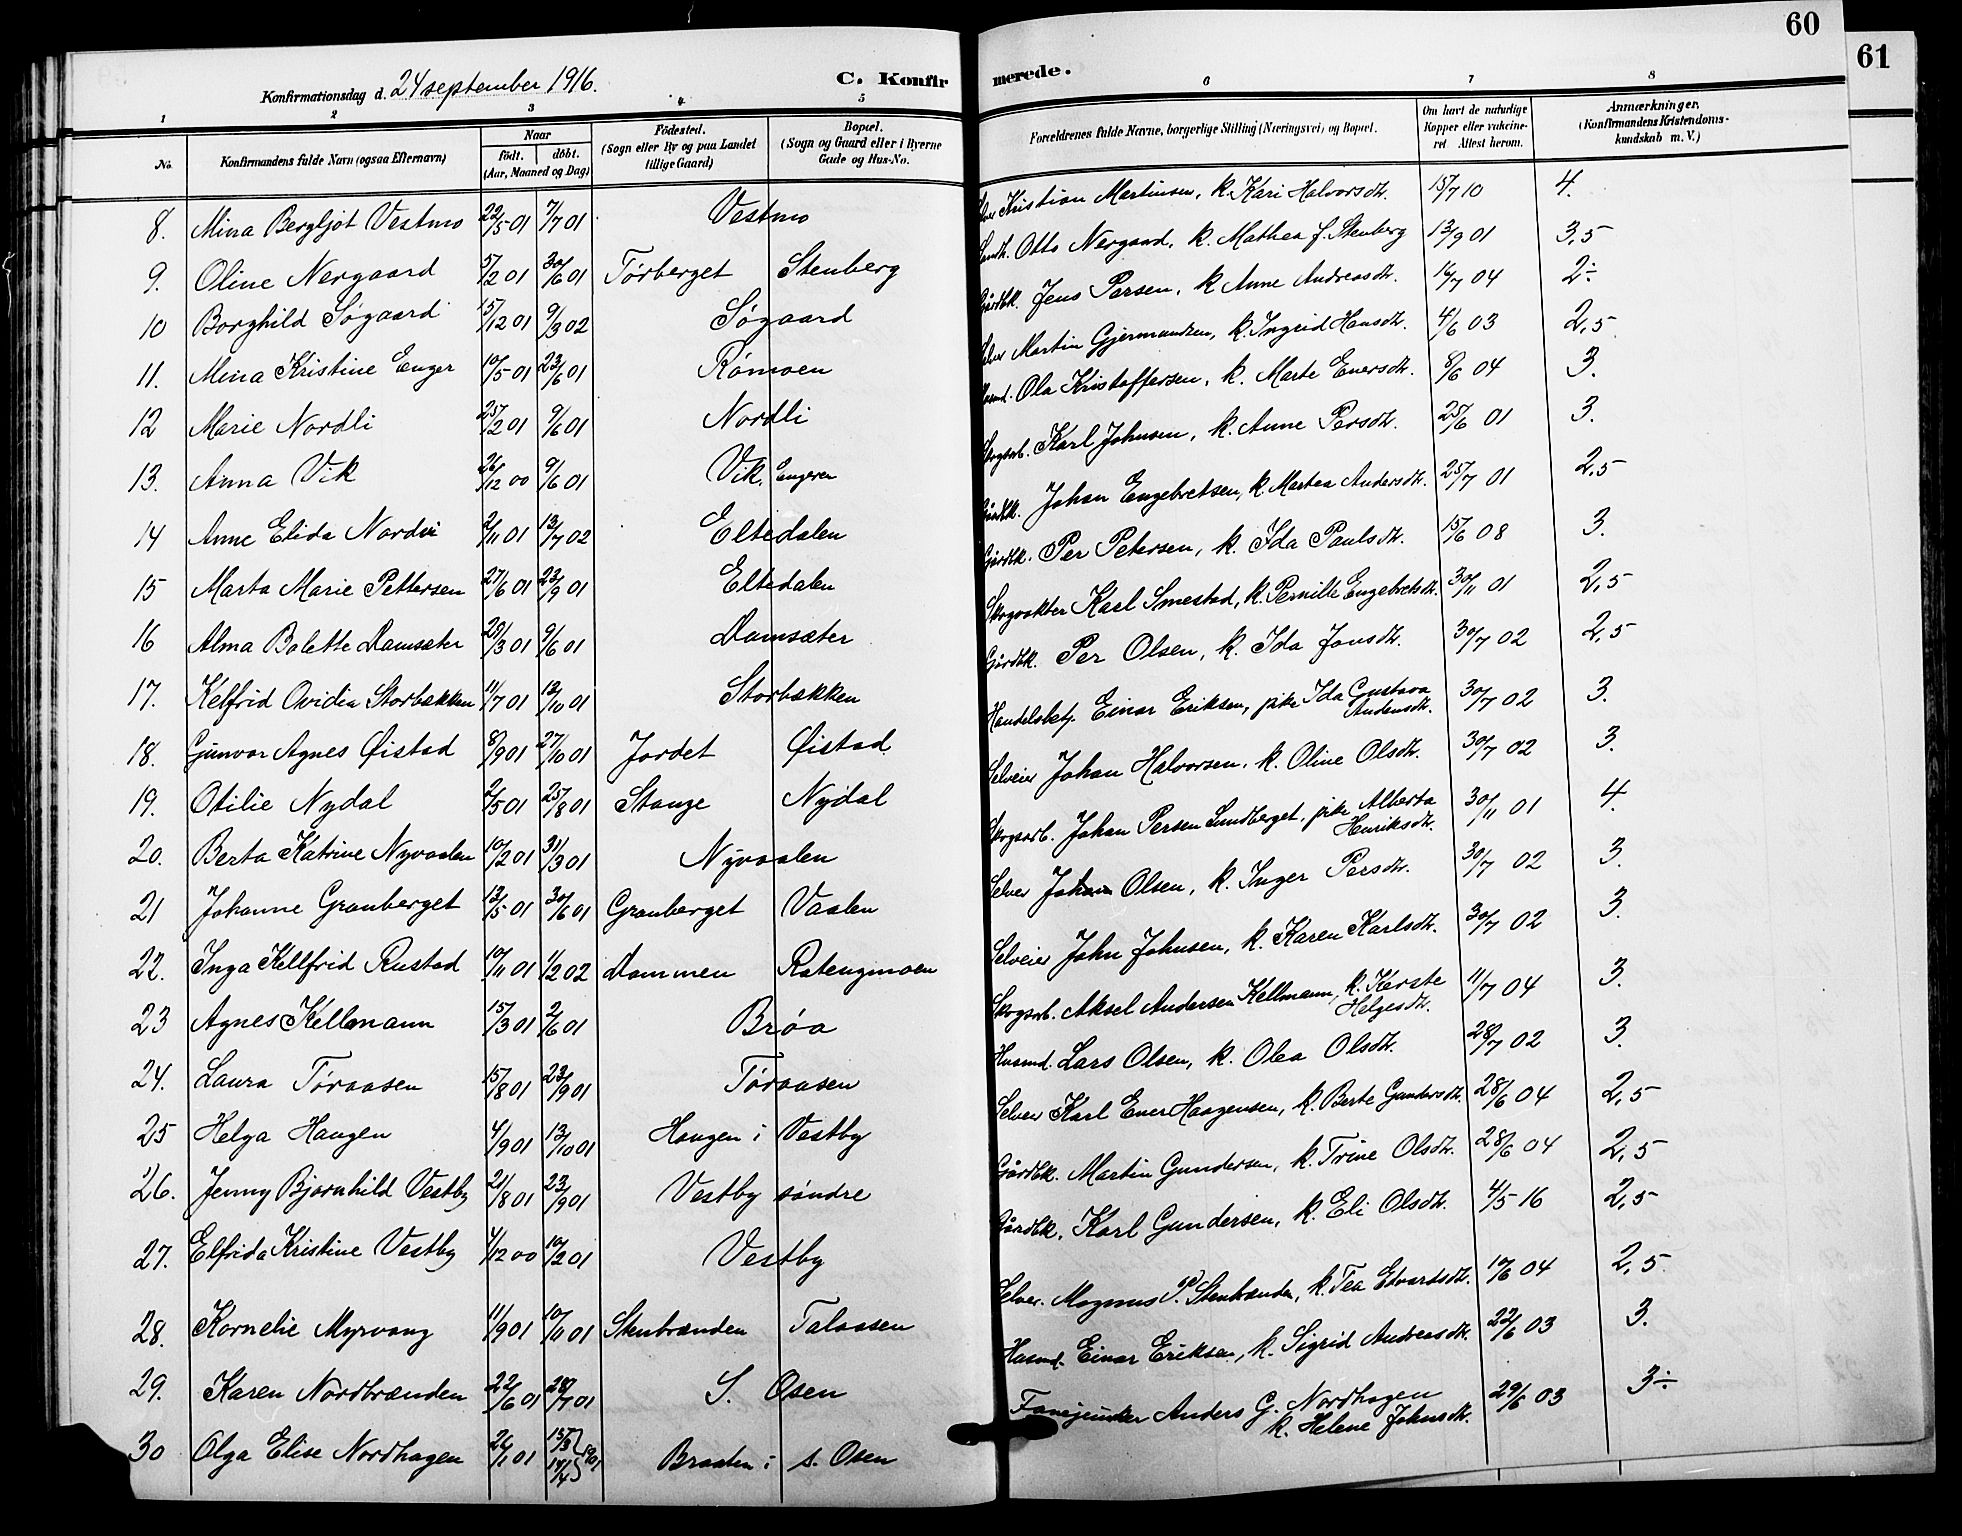 60
61
Konfirmationsdag d. 24 september 1916.
C. Konfirmerede.
1 2 3 4 5 6 7 8
No.
Konfirmandens fulde Navn (ogsaa Efternavn)
Naar
født. | døbt.
(Aar, Maaned og Dag)
Fødested.
(Sogn eller By og paa Landet
tillige Gaard)
Bopæl.
(Sogn og Gaard eller i Byerne
Gade og Hus-No.
Forældrenes fulde Navne, borgerlige Stilling (Næringsvei) og Bopæl.
Om havt de naturlige
Kopper eller vakcine-
ret Attest herom.
Anmærkninger,
(Konfirmandens Kristendoms-
kundskab m. V.)
8. Mina Bergljot Vestmo 22/5 01 7/7 01 Vestmo Kristian Martinsen, k. Kari Halvorsdtr. 15/7 10 4.
9. Oline Nergaard 5/2 01 30/6 01 Törberget Stenberg Otto Nergaard, k. Mathea f. Stenberg 13/9 01 3,5
10 Borghild Søgaard 15/12 01 9/3 02 Søgaard Gårdbk. Jens Persen, k Anne Andreasdtr. 16/7 04 2÷
11. Mina Kristine Enger 10/5 01 23/6 01 Rømoen Martin Gjermundsen, k. Ingrid Hansdtr. 4/6 03 2,5
12 Marie Nordli 25/2 01 9/6 01 Nordli Ola Kristoffersen, k. Marte Enersdtr. 8/6 04 3.
13. Anna Vik 26/12 00 9/6 01 Vik, Engeren Skogsarb. Karl Johnsen, k. Anne Persdtr. 25/6 01 3.
14 Anne Elida Nordvi 2/11 01 13/7 02 Eltedalen Gårdbk. Johan Engebretsen, k. Martea Andersdtr. 25/7 01 2,5
15 Marta Marie Pettersen 27/6 01 23/9 01 Eltedalen Gårdbk. Per Petersen, k. Ida Paulsdtr. 15/6 08 3.
16 Alma Bolette Damsæter 29/3 01 9/6 01 Damsæter Skogvakter Karl Smestad, k. Pernille Engebretsdtr. 30/11 01 2,5
17. Kelfrid Ovidia Storbækken 11/7 01 13/10 01 Storbækken Gårdbk. Per Olsen, k. Ida Jonsdtr. 30/7 02 2,5
18. Gunvor Agnes Øistad 8/9 01 27/10 01 Jordet Øistad Handelsbetj. Einar Eriksen, pike Ida Gustava
Andersdtr. 30/7 02 3.
19. Otilie Nydal 2/5 01 25/8 01 Stange Nydal Selveier Johan Halvorsen, k. Oline Olsdtr. 30/7 02 3.
20. Berta Katrine Nyvaalen 10/2 01 31/3 01 Nyvaalen Skogsarb. Johan Persen Lundberget, pike Alberta
Henriksdtr. 30/11 01 4.
21 Johanne Granberget 13/5 01 30/6 01 Granberget Vaalen Selveier Johan Olsen, k. Inger Persdtr. 30/7 02 3.
22. Inga Kellfrid Rustad 10/11 01 1/2 02 Dammen Rotengmoen Selveier John Johnsen, k. Karen Karlsdtr. 30/7 02 3.
23 Agnes Kellmann 15/3 01 2/6 01 Brøa Skogsarb. Aksel Andersen Kellmann, k. Kerste
Helgesdtr. 11/7 04 3.
24. Laura Tøraasen 15/8 01 23/9 01 Tøraasen Husmd. Lars Olsen, k. Olea Olsdtr. 28/7 02 3.
25 Helga Haugen 4/9 01 13/10 01 Haugen i Vestby Selveier Karl Ener Haagensen, k. Berte Gundersdtr. 28/6 04 2,5
26. Jenny Bjørnhild Vestby 21/8 01 23/9 01 Vestby søndre Gårdbk. Martin Gundersen, k. Trine Olsdtr. 28/6 04 2,5
27. Elfrida Kristine Vestby 4/12 00 10/2 01 Vestby Gårdbk. Karl Gundersen, k. Eli Olsdtr. 4/5 16 2,5
28. Kornelie Myrvang 11/9 01 10/11 01 Stenbrænden Talaasen Selvei. Magnus P. Stenbrænden, k. Tea Edvardsdtr. 10/6 04 2,5
29. Karen Nordbrænden 22/6 01 28/7 01 S. Osen Husmd. Einar Eriksen, k. Sigrid Andreasdtr. 22/6 03 3.
30 Olga Elise Nordhagen 26/1 01 Braaten i s. Osen Fanejunker Anders G. Nordhagen
k. Helene Johnsdtr. 29/6 03 3÷